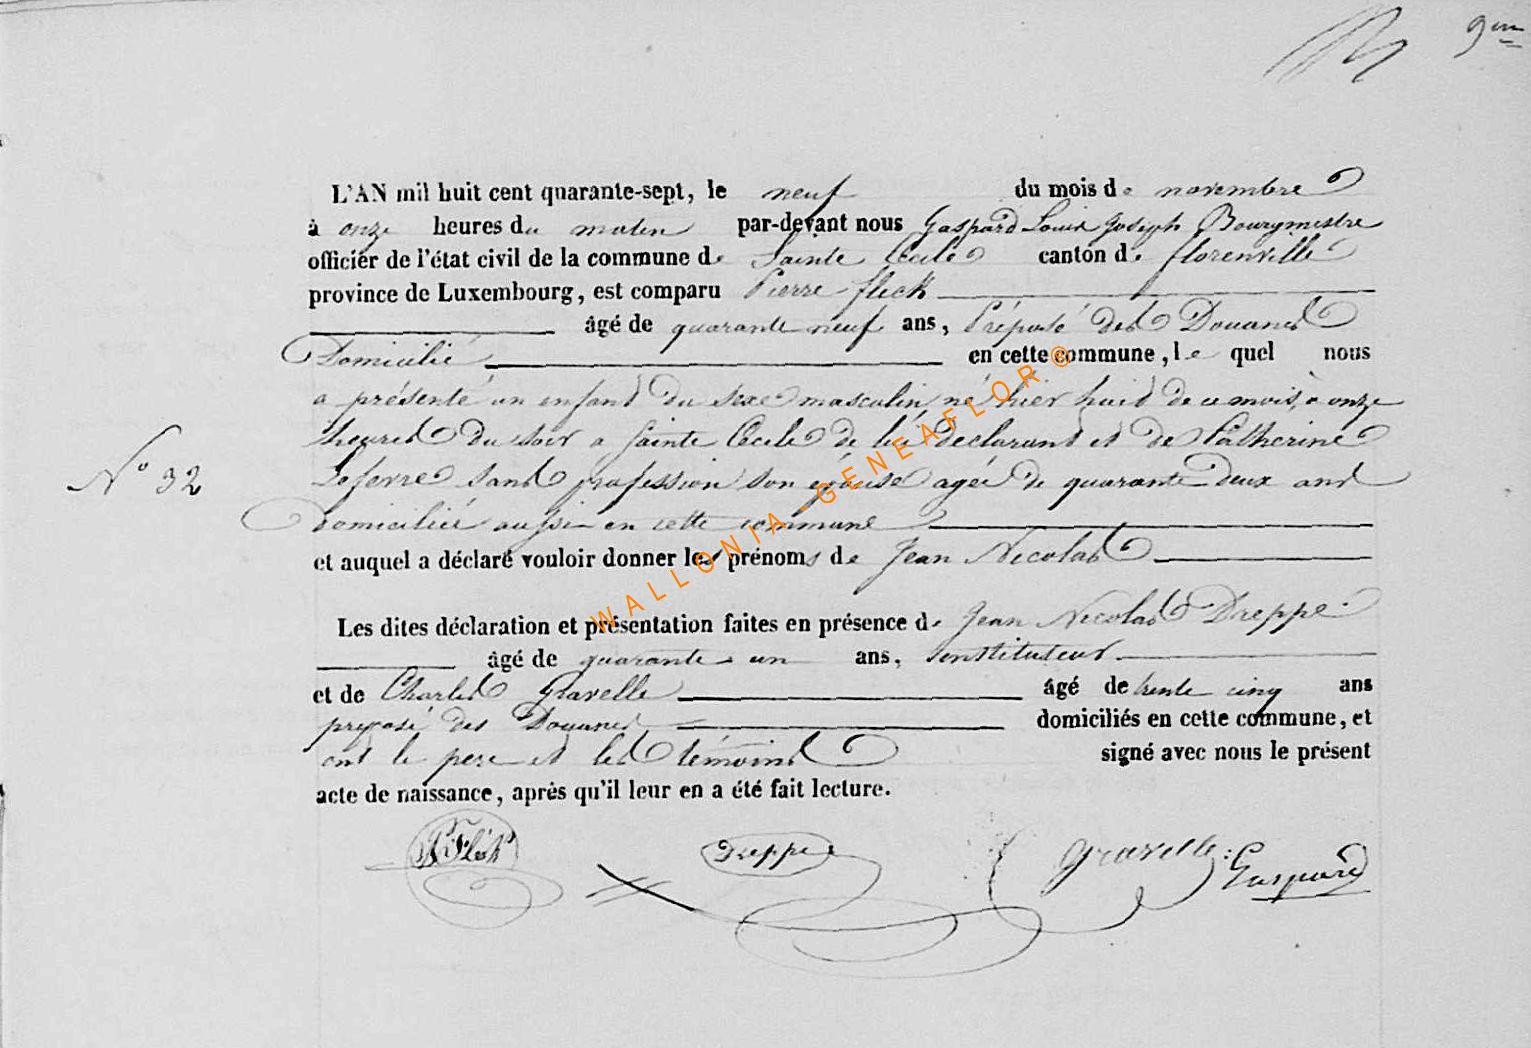 9em
L'AN mil huit cent quarante-sept, le neuf du mois de novembre
à onze heures du matin par-devant nous Gaspard Louis Joseph Bourgmestre
officier de l'état civil de la commune de Sainte Cecile canton de florenville
province de Luxembourg, est comparu Pierre fleck
âgé de quarante neuf ans, Préposé des Douanes
Domicilié en cette commune, le quel nous
a présenté un enfant du sexe masculin, né hier huit de ce mois, à onze
heures du soir a Sainte Cecile de lui déclarant et de Catherine
Lefevre sans profession son épouse agée de quarante deux ans
domiciliée aussi en cette commune
N° 32
et auquel a déclaré vouloir donner les prénoms de Jean Nicolas
Les dites déclaration et présentation faites en présence de Jean Nicolas Dreppe
âgé de quarante un ans, instituteur
et de Charles Gravelle âgé de trente cinq ans
préposé des Douanes domiciliés en cette commune, et
ont le pere et les témoins signé avec nous le présent
acte de naissance, après qu'il leur en a été fait lecture.
P Fleck Dreppe Gravelle Gaspard
WALLONIA - GENEAFLOR ©